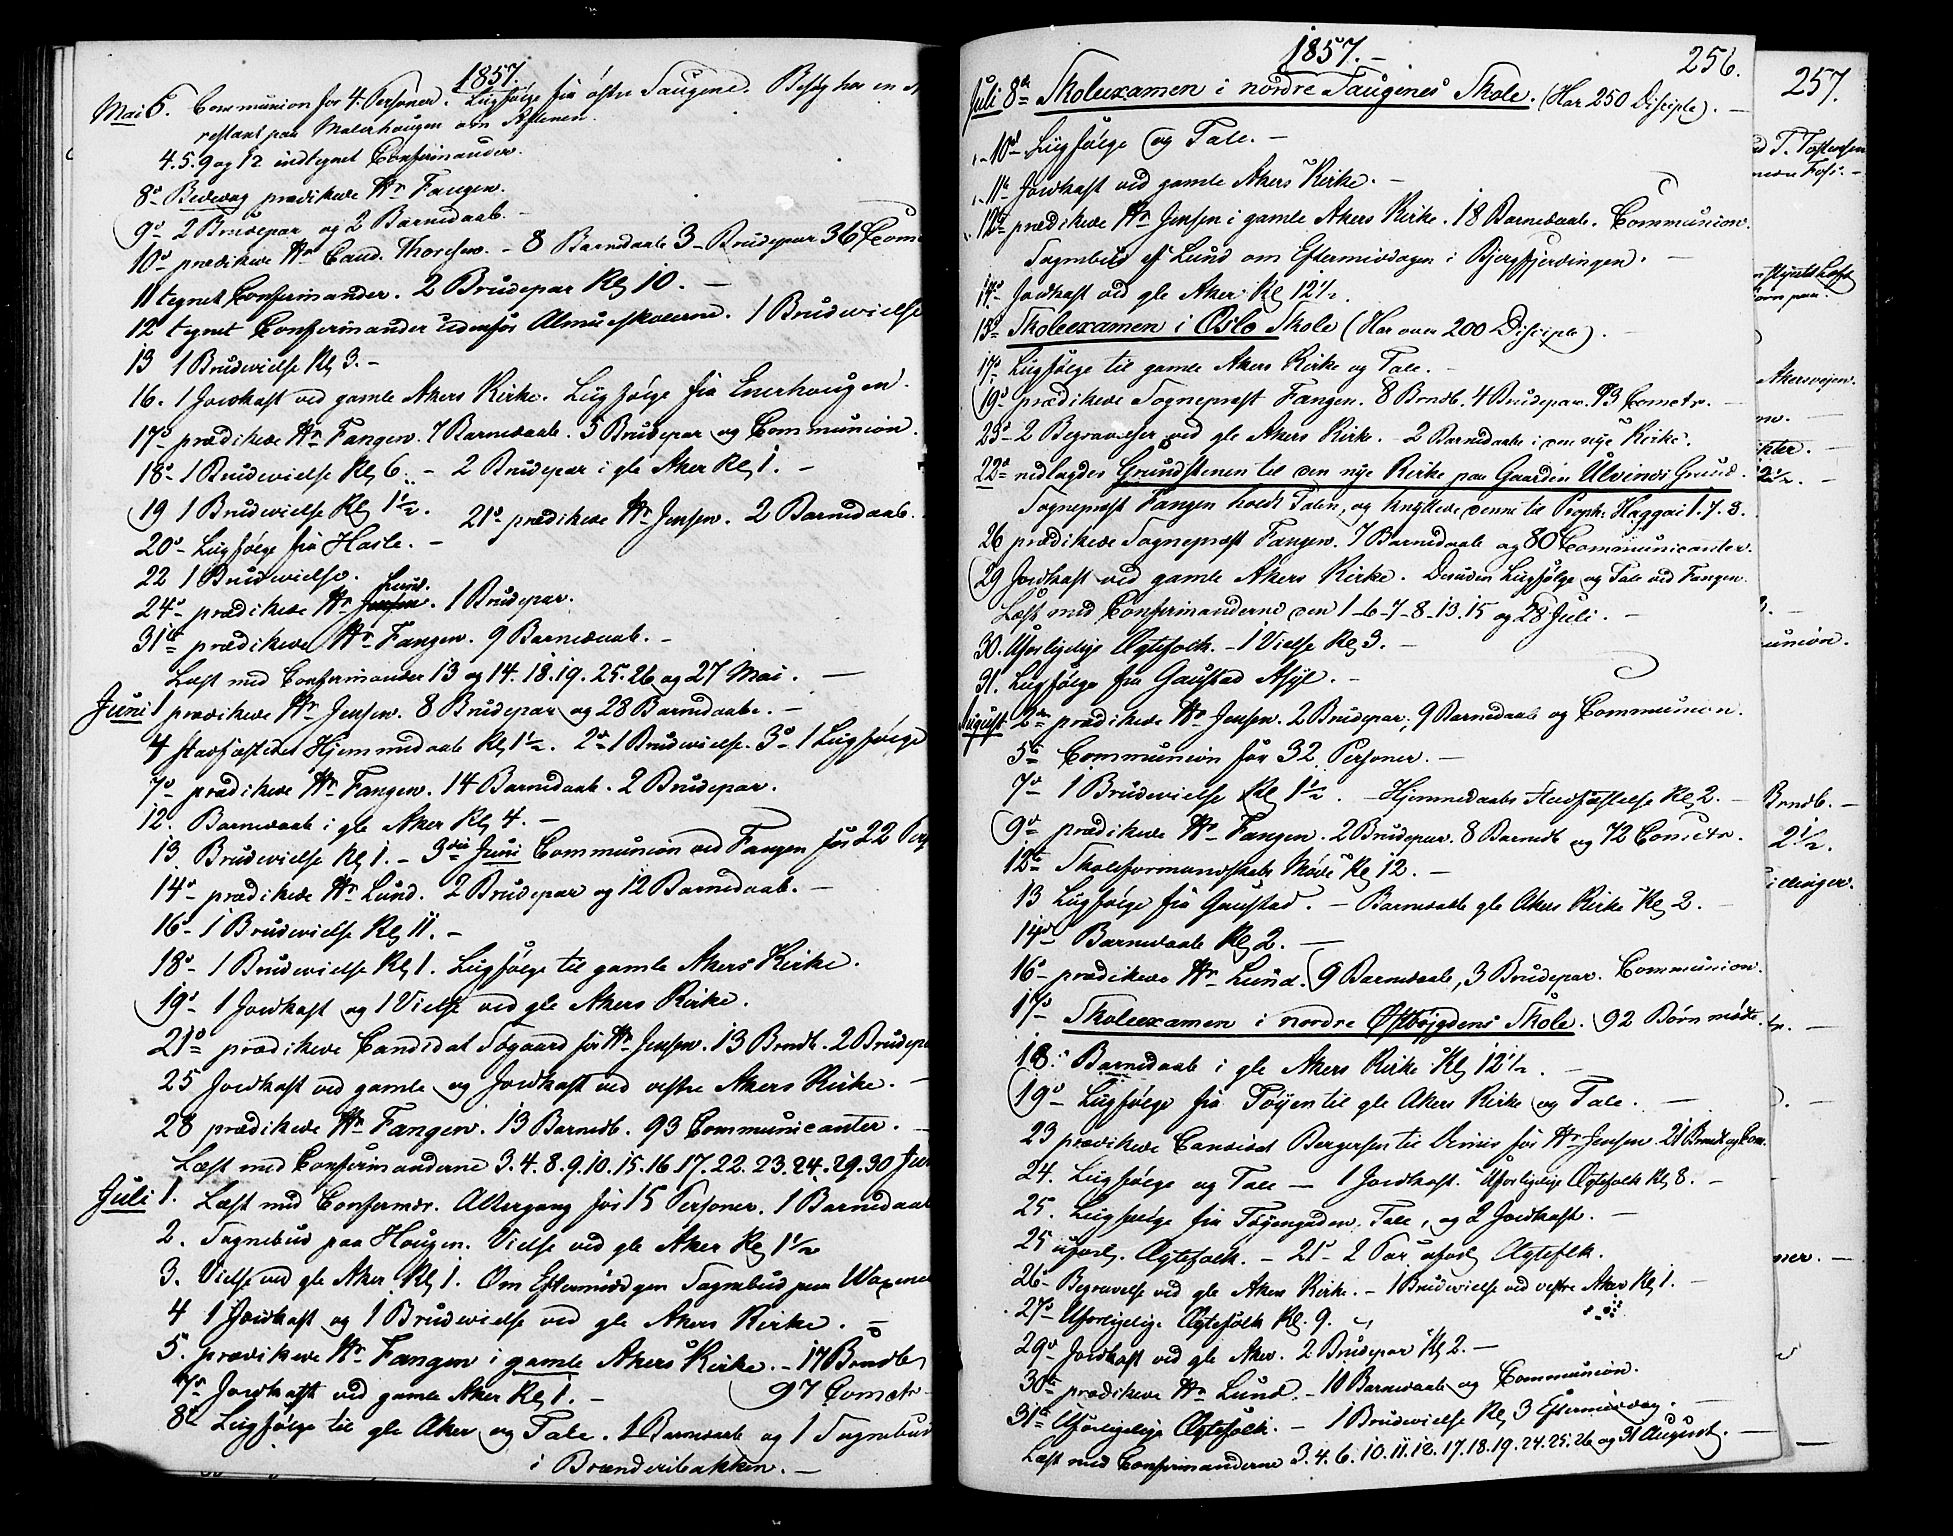 1857.
Mai 6. Communion for 4 Personer. Liigfølge fra østre Taugene. Besøg hos en A
restant paa Malerhaugen om Aftenen.
4.5.9 og 12 indtegnet Confirmander.
8d Bededag prædikede Hr Fangen.
9d 2 Brudepar og 2 Barnedaab.
10d prædikede Hr Cand. Thoresen. - 8 Barnedaab 3 - Brudepar 36 Com
11 tegnet Confirmander. 2 Brudepar Kl 10. -
12 tegnet Confirmander udenfor Almueskolerne. 1 Brudevielse
13 1 Brudevielse Kl 3. -
16. 1 Jordkast ved gamle Akers Kirke. Liigfølge fra Enerhougen.
17d prædikede Hr Fangen. 7 Barnedaab. 5 Brudepar og Communion.
18d - 1 Brudevielse Kl 6. - 2 Brudepar i gle Aker Kl 1. -
19 1 Brudevielse Kl 1½. 21d prædikede Hr Jensen. 2 Barnedaab.
20d - Liigfølge fra Hasle. -
22 1 Brudevielse.
24d - prædikede Hr Lund. 1 Brudepar.
31te prædikede Hr Fangen. 9 Barnedaab. -
Læst med Confirmander 13 og 14. 18. 19. 25. 26 og 27 Mai. -
Juni 1 prædikede Hr Jensen. 8 Brudepar og 28 Barnedaab. -
4 stadfæstedes Hjemmedaab Kl 1½. 2d - 1 Brudevielse. 3d - 1 Liigfølge
7d prædikede Hr Fangen. 14 Barnedaab. 2 Brudepar.
12. Barnedaab i gle Aker Kl 4. -
13 Brudevielse Kl 1. - 3die Juni Communion ved Fangen for 22 Pers
14d - prædikede Hr Lund. 2 Brudepar og 12 Barnedaab. -
16 - 1 Brudevielse Kl 11. -
18d - 1 Brudevielse Kl 1. Liigfølge til gamle Akers Kirke.
19d - 1 Jordkast og 1 Vielse ved gle Akers Kirke.
21d prædikede Candidat Søgaard for Hr Jensen. 13 Brndb. 2 Brudepa
25 Jordkast ved gamle og Jordkast ved vestre Akers Kirke. -
28 prædikede Hr Fangen. 13 Barnedb. 93 Communicanter. -
Læst med Confirmanderne 3. 4. 8. 9. 10. 15. 16. 17. 22. 23. 24. 29. 30 Jun
Juli 1. Læst med Confermdr. Altergang for 15 Personer. 1 Barnedaab
2. Sognebud paa Hougen. Vielse ved gle Aker Kl 1½
3. Vielse ved gle Aker Kl 1. Om Eftermiddagen Sognebud paa
4 1 Jordkast og 1 Brudevielse ved gle Akers Kirke. -
5. prædikede Hr Fangen i gamle Akers Kirke. - 17 Barndb
97 Comctr -
7d Jordkast ved gamle Aker Kl 1. -
8d Liigfølge til gle Aker og Tale. 1 Barnedaab og 1 Sognebud
i Brænderibakken. -
1857. -
256.
Juli 8de Skoleexamen i nordre Taugenes Skole. (Har 250 Disciple). -
10d - Liigfølge og Tale. -
11te Jordkast ved gamle Akers Kirke. -
12te prædikede Hr Jensen i gamle Akers Kirke. 18 Barnedaab. Communion.
Sognebud af Lund om Eftermiddagen i Bjergfjerdingen. -
14d - Jordkast ved gle Aker Kl 12½.
15d Skoleexamen i Oslo Skole (Har over 200 Disciple). -
17d - Liigfølge til gamle Akers Kirke og Tale. -
19d - prædikede Sognepræst Fangen. 8 Brndb. 4 Brudepar. 93 Comctr. -
23d - 2 Begravelser ved gle Akers Kirke. - 2 Barnedaab i den nye Kirke.
22d - nedlagdes Grundstenen til den nye Kirke paa Gaarden Ulvens Grund.
Sognepræst Fangen holdt Talen, og knyttede denne til Proph. Haggai 1. 7. 8.
26 prædikede Sognepræst Fangen. 7 Barnedaab og 80 Communicanter.
29 Jordkast ved gamle Akers Kirke. Desuden Liigfølge og Tale ved Fangen.
Læst med Confirmanderne den 1 - 6 - 7 - 8 - 13. 15 og 28 Juli. -
30. Uforligelige Ægtefolk. - 1 Vielse Kl 3. -
31. Liigfølge fra Gaustad Asyl. -
August 2den prædikede Hr Jensen. 2 Brudepar, 9 Barnedaab og Communion.
5te Communion for 32 Personer. -
7d 1 Brudevielse Kl 1½. - Hjemmedaabs Stadfæstelse Kl 2. -
9d prædikede Hr Fangen. 2 Brudepar. 8 Barnedb og 72 Comctr. -
12te Skoleformandskabs Møde Kl 12. -
13 Liigfølge fra Gaustad. - Barnedaab gle Akers Kirke Kl 2. -
14d Barnedaab Kl 2. -
16d - prædikede Hr Lund. 9 Barnedaab, 3 Brudepar. Communion.
17d Skoleexamen i nordre Østbygdens Skole. 92 Børn mødte.
18. Barnedaab i gle Akers Kirke Kl 12½. -
19d - Liigfølge fra Tøyen til gle Akers Kirke og Tale. -
23 prædikede Candidat Bergersen til for Hr Jensen. 21 Brndb og Com.
24. Liigfølge og Tale - 1 Jordkast. Uforligelige Ægtefolk Kl 8. -
25. Liigfølge fra Tøyengaden, Tale, og 2 Jordkast. -
25 uforl. Ægtefolk. - 21d - 2 Par uforl Ægtefolk.
26d - Begravelse ved gle Akers Kirke. - 1 Brudevielse ved vestre Aker Kl 1. -
27d Uforligelige Ægtefolk Kl. 9.
29d Jordkast ved gle Aker. 2 Brudepar Kl 2. -
30te prædikede Hr Lund. - 10 Barnedaab og Communion.
31te Uforligelige Ægtefolk. - 1 Brudevielse Kl 3 Eftermiddag. -
Læst med Confirmanderne 3. 4. 6. 10. 11. 12. 17. 18. 19. 24. 25. 26 og 31 August. -
257.
T. Tostensen
Akersveien.
2½.
Brndb. -
2½.